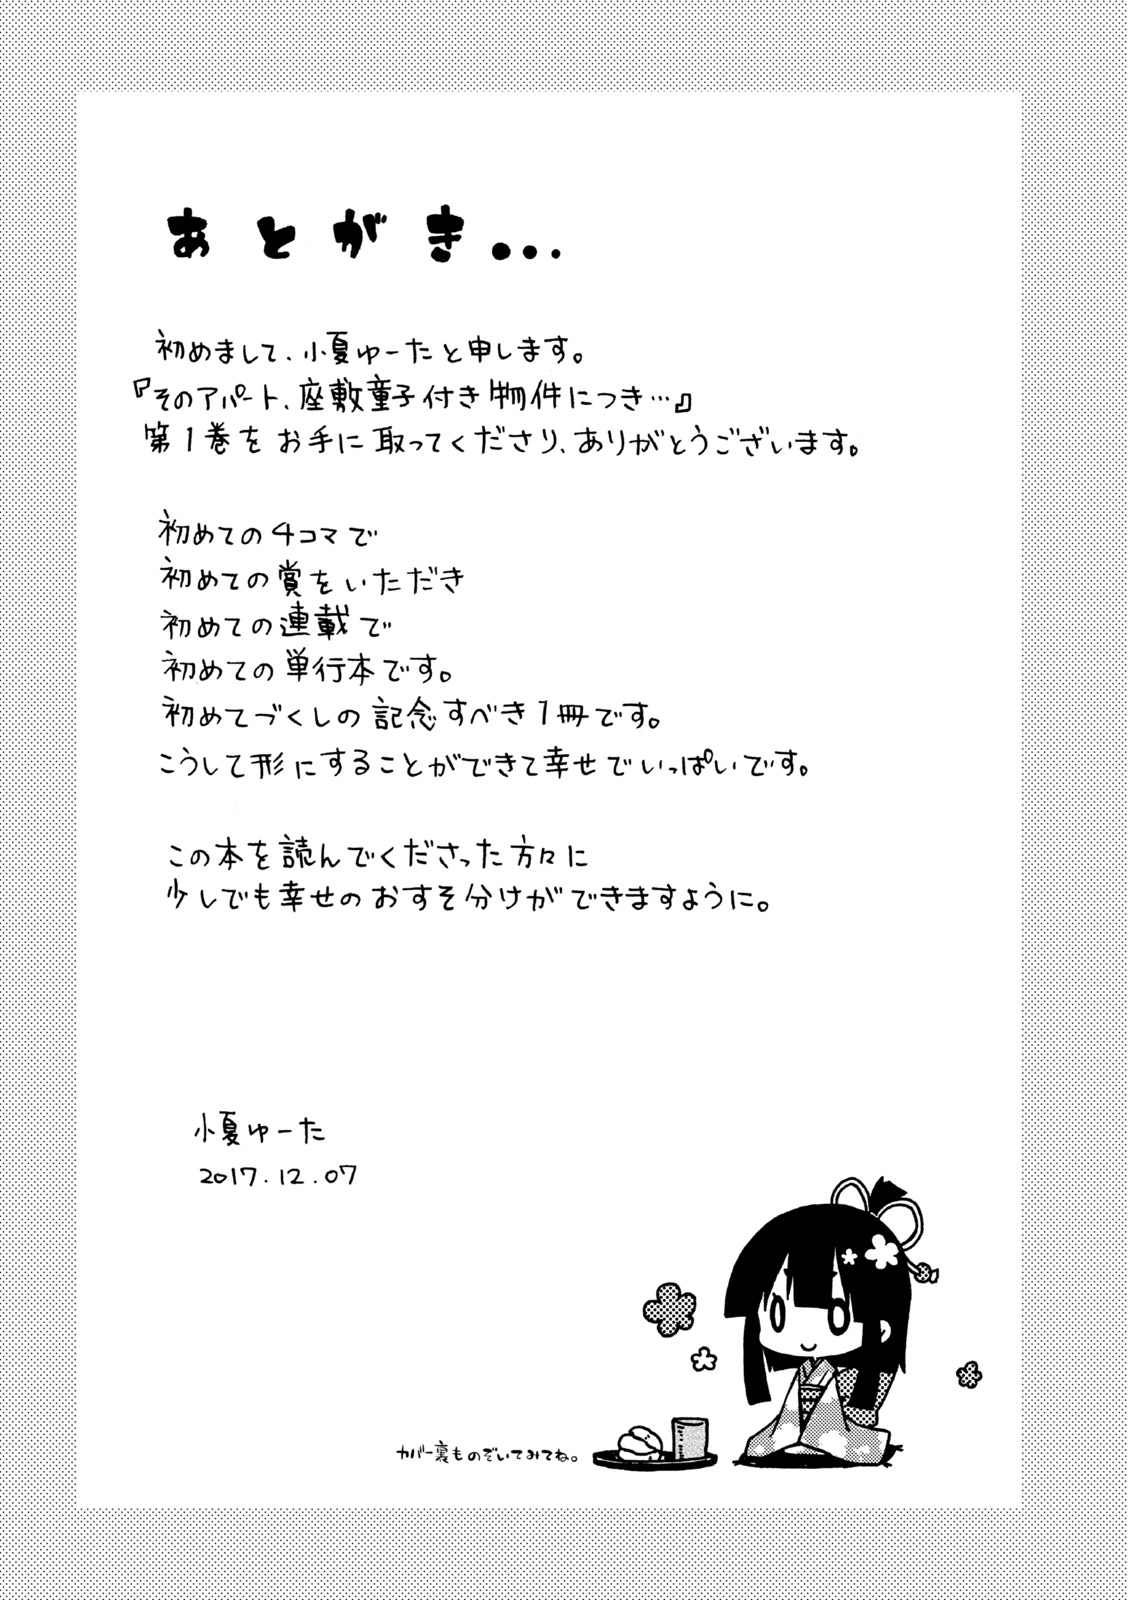 あとがき...
初めまして、小夏ゆーたと申します。
『そのアパート、座敷童子付き物件につき…』
第1巻をお手に取ってくださり、ありがとうございます。
初めての4コマで
初めての賞をいただき
初めての連載で
初めての単行本です。
初めてづくしの記念すべき1冊です。
こうして形にすることができて幸せでいっぱいです。
この本を読んでくださった方々に
少しでも幸せのおすそ分けができますように。
小夏ゆーた
2017.12.07
カバー裏ものぞいてみてね。